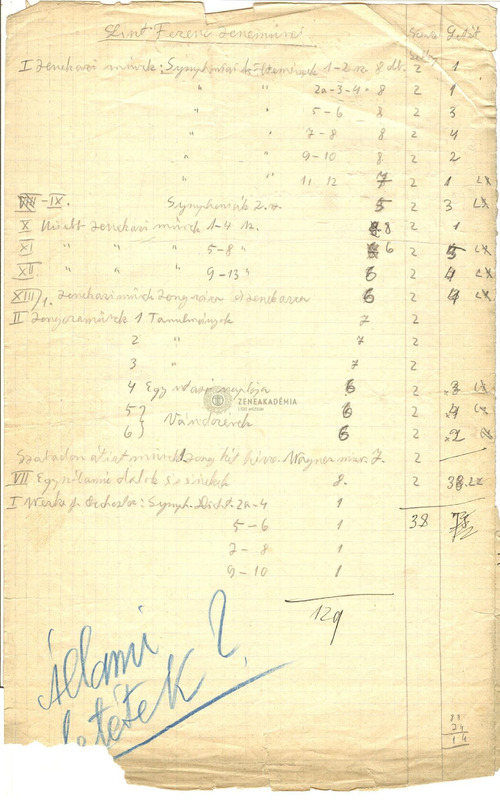 Liszt Ferenc zeneművei
I Zenekari művek: Symphoniai költemények 1-2 sz. 8 db. 2 1
" " 2a-3-4. 8 2 1
" " 5-6 8 2 3
" " 7-8 8 2 4
" " 9-10 8 2 2
" " 11 12 7 2 1
-IX. Symphoniák 2. sz. 5 2 3
X Kisebb zenekari művek 1-4 sz. 8 2 1
XI " " " 5-8 " 6 2 5
XII " " " 9-13 " 6 2 4
XIII/1. Zenekari művek zongorára és zenekarra 6 2 4
II Zongoraművek 1 Tanulmányok 7 2
2 " 7 2
3 " 7 2
4 Egy utazó naplója 6 2
5 } 6 2
6 } Vándorévek 6 2 2
ZENEAKADÉMIA
Szabadon átírt művek Wagner 7. 2 —
VII Egyszólamú dalok és énekek 8. 2
I Werke f. Orchester: Symph. Dicht. 2a-4 1
5-6 1 38
7-8 1
9-10 1
129
Állami
letétek?